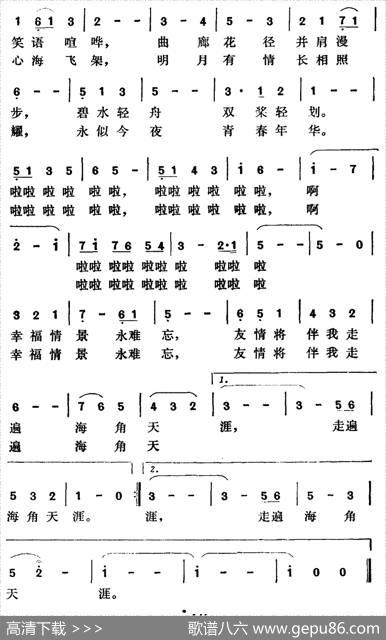 1 6 1 3 | 2 - - | 3 - 4 | 5 - 3 | 2 1 7 1 |
笑语 喧 哗， 曲 廊 花 径 并肩漫
心海 飞 架， 明 月 有 情 长相照
6 - - | 5 1 3 | 5 - - | 5 4 3 | 3 · 1 2 | 1 - - |
步， 碧水轻 舟 双 桨轻 划。
耀， 永似今 夜 青 春年 华。
5 1 3 5 | 6 5 - | 5 1 4 3 | 1 6 - | i - 7 |
啦啦 啦啦 啦啦， 啦啦 啦啦 啦啦， 啊
啦啦 啦啦 啦啦， 啦啦 啦啦 啦啦， 啊
2 - i | 7 i 7 6 5 4 | 3 - 2·1 | 5 - - | 5 - 0 |
啦啦 啦啦 啦啦 啦 啦啦 啦
啦啦 啦啦 啦啦 啦 啦啦 啦
3 2 1 | 7 - 6 1 | 5 - - | 6 5 1 | 4 3 2 |
幸福情 景 永难 忘， 友情将 伴我走
幸福情 景 永难 忘， 友情将 伴我走
1.
6 - - | 7 6 5 | 4 3 2 | 3 - - | 3 - 5 6 |
遍 海 角 天 涯， 走遍
遍 海 角 天
2.
5 3 2 | 1 - 0 :| 3 - - | 3 - 5 6 | 5 - 3 |
海角天 涯。 涯， 走遍 海 角
5 2 - | i - - | i - - | i 0 0 ‖
天 涯。
高清下载 >>> 歌谱八六 www.gepu86.com